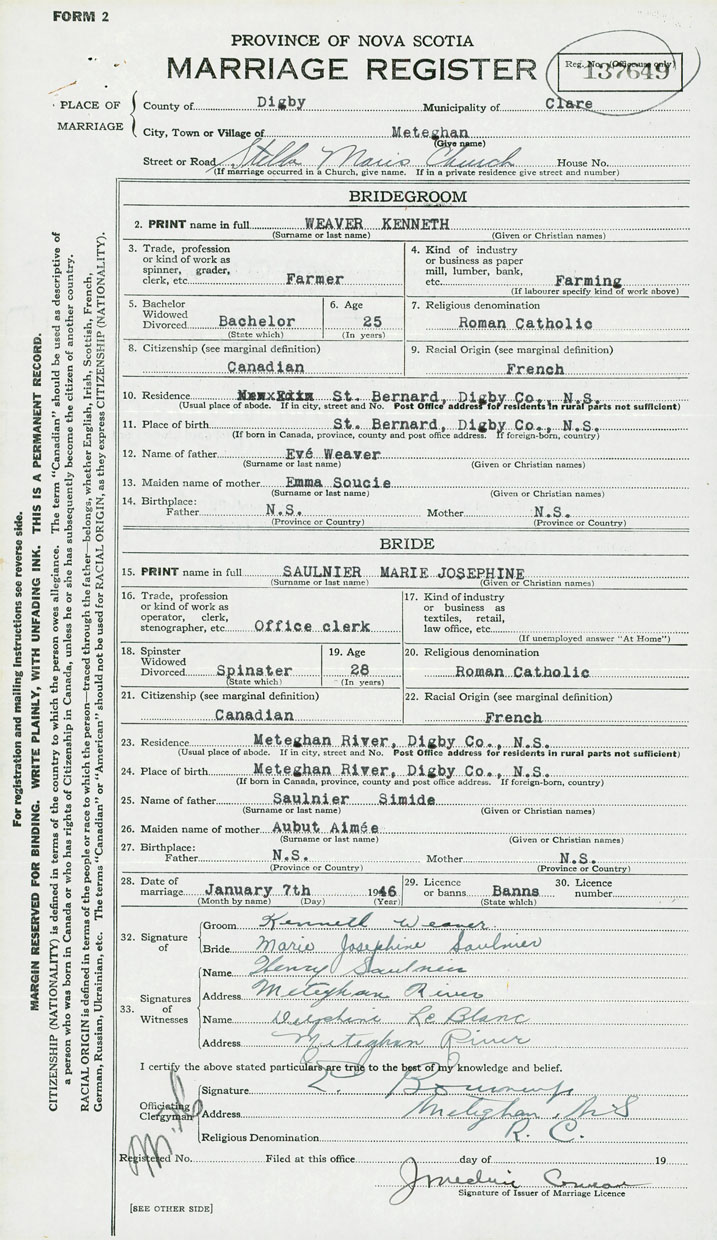 FORM 2
PROVINCE OF NOVA SCOTIA
MARRIAGE REGISTER
Reg. No. (Office use only)
137649
PLACE OF MARRIAGE
County of Digby Municipality of Clare
City, Town or Village of Meteghan
(Give name)
Street or Road Stella Maris Church House No.
(If marriage occurred in a Church, give name. If in a private residence give street and number)
BRIDEGROOM
2. PRINT name in full WEAVER KENNETH
(Surname or last name) (Given or Christian names)
3. Trade, profession or kind of work as spinner, grader, clerk, etc. Farmer
4. Kind of industry or business as paper mill, lumber, bank, etc. Farming
(If labourer specify kind of work above)
5. Bachelor Widowed Divorced Bachelor
(State which)
6. Age 25
(In years)
7. Religious denomination
Roman Catholic
8. Citizenship (see marginal definition)
Canadian
9. Racial Origin (see marginal definition)
French
10. Residence St. Bernard, Digby Co., N.S.
(Usual place of abode. If in city, street and No. Post Office address for residents in rural parts not sufficient)
11. Place of birth St. Bernard, Digby Co., N.S.
(If born in Canada, province, county and post office address. If foreign-born, country)
12. Name of father Evé Weaver
(Surname or last name) (Given or Christian names)
13. Maiden name of mother Emma Soucie
(Surname or last name) (Given or Christian names)
14. Birthplace:
Father N.S. Mother N.S.
(Province or Country) (Province or Country)
BRIDE
15. PRINT name in full SAULNIER MARIE JOSEPHINE
(Surname or last name) (Given or Christian names)
16. Trade, profession or kind of work as operator, clerk, stenographer, etc. Office clerk
17. Kind of industry or business as textiles, retail, law office, etc.
(If unemployed answer "At Home")
18. Spinster Widowed Divorced Spinster
(State which)
19. Age 28
(In years)
20. Religious denomination
Roman Catholic
21. Citizenship (see marginal definition)
Canadian
22. Racial Origin (see marginal definition)
French
23. Residence Meteghan River, Digby Co., N.S.
(Usual place of abode. If in city, street and No. Post Office address for residents in rural parts not sufficient)
24. Place of birth Meteghan River, Digby Co., N.S.
(If born in Canada, province, county and post office address. If foreign-born, country)
25. Name of father Saulnier Simide
(Surname or last name) (Given or Christian names)
26. Maiden name of mother Aubut Aimée
(Surname or last name) (Given or Christian names)
27. Birthplace:
Father N.S. Mother N.S.
(Province or Country) (Province or Country)
28. Date of marriage January 7th 1946
(Month by name) (Day) (Year)
29. Licence or banns Banns
(State which)
30. Licence number
32. Signature of
Groom Kenneth Weaver
Bride Marie Josephine Saulnier
33. Signatures of Witnesses
Name Henry Saulnier
Address Meteghan River
Name Delphine LeBlanc
Address Meteghan River
I certify the above stated particulars are true to the best of my knowledge and belief.
Officiating Clergyman
Signature
Address Meteghan, N S
Religious Denomination R. C.
Registered No. Filed at this office day of 19
Signature of Issuer of Marriage Licence
[SEE OTHER SIDE]
For registration and mailing instructions see reverse side.
MARGIN RESERVED FOR BINDING. WRITE PLAINLY, WITH UNFADING INK. THIS IS A PERMANENT RECORD.
CITIZENSHIP (NATIONALITY) is defined in terms of the country to which the person owes allegiance. The term "Canadian" should be used as descriptive of
a person who was born in Canada or who has rights of Citizenship in Canada, unless he or she has subsequently become the citizen of another country.
RACIAL ORIGIN is defined in terms of the people or race to which the person—traced through the father—belongs, whether English, Irish, Scottish, French,
German, Russian, Ukrainian, etc. The terms "Canadian" or "American" should not be used for RACIAL ORIGIN, as they express CITIZENSHIP (NATIONALITY).